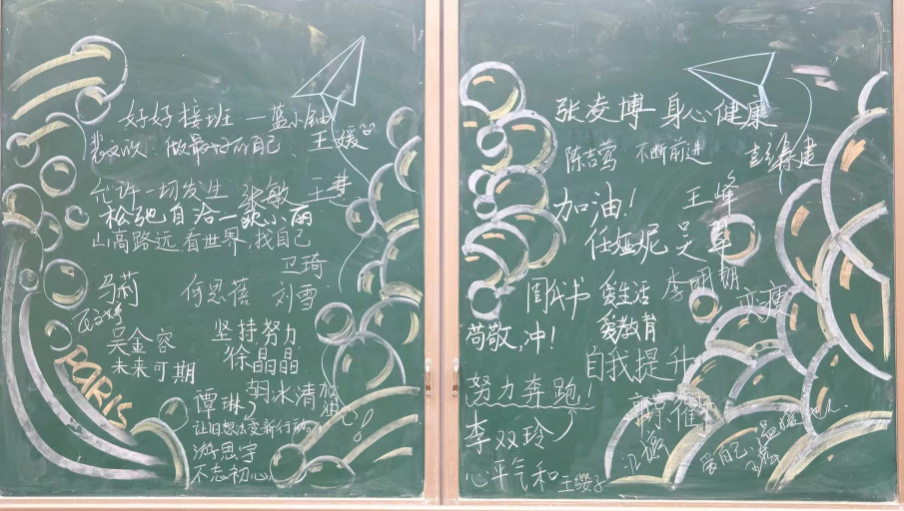 好好接班 一蓝小钿
做最好的自己 王媛
允许一切发生 张敏 王慧
松弛自洽一 小丽
山高路远 看世界,找自己
卫琦
马莉 何思蓓 刘雪
吴金容 坚持努力
未来可期 徐晶晶
胡冰清 加油!
谭琳
让旧想法变新行动。
游思宇
不忘初心
PARIS
张凌博 身心健康
陈吉莺 不断前进
加油! 王峰
任娅妮 吴苹
爱生活 李明朝
苟敬,冲! 爱教育
自我提升
努力奔跑!
李双玲
心平气和 王缨子
爱自己,